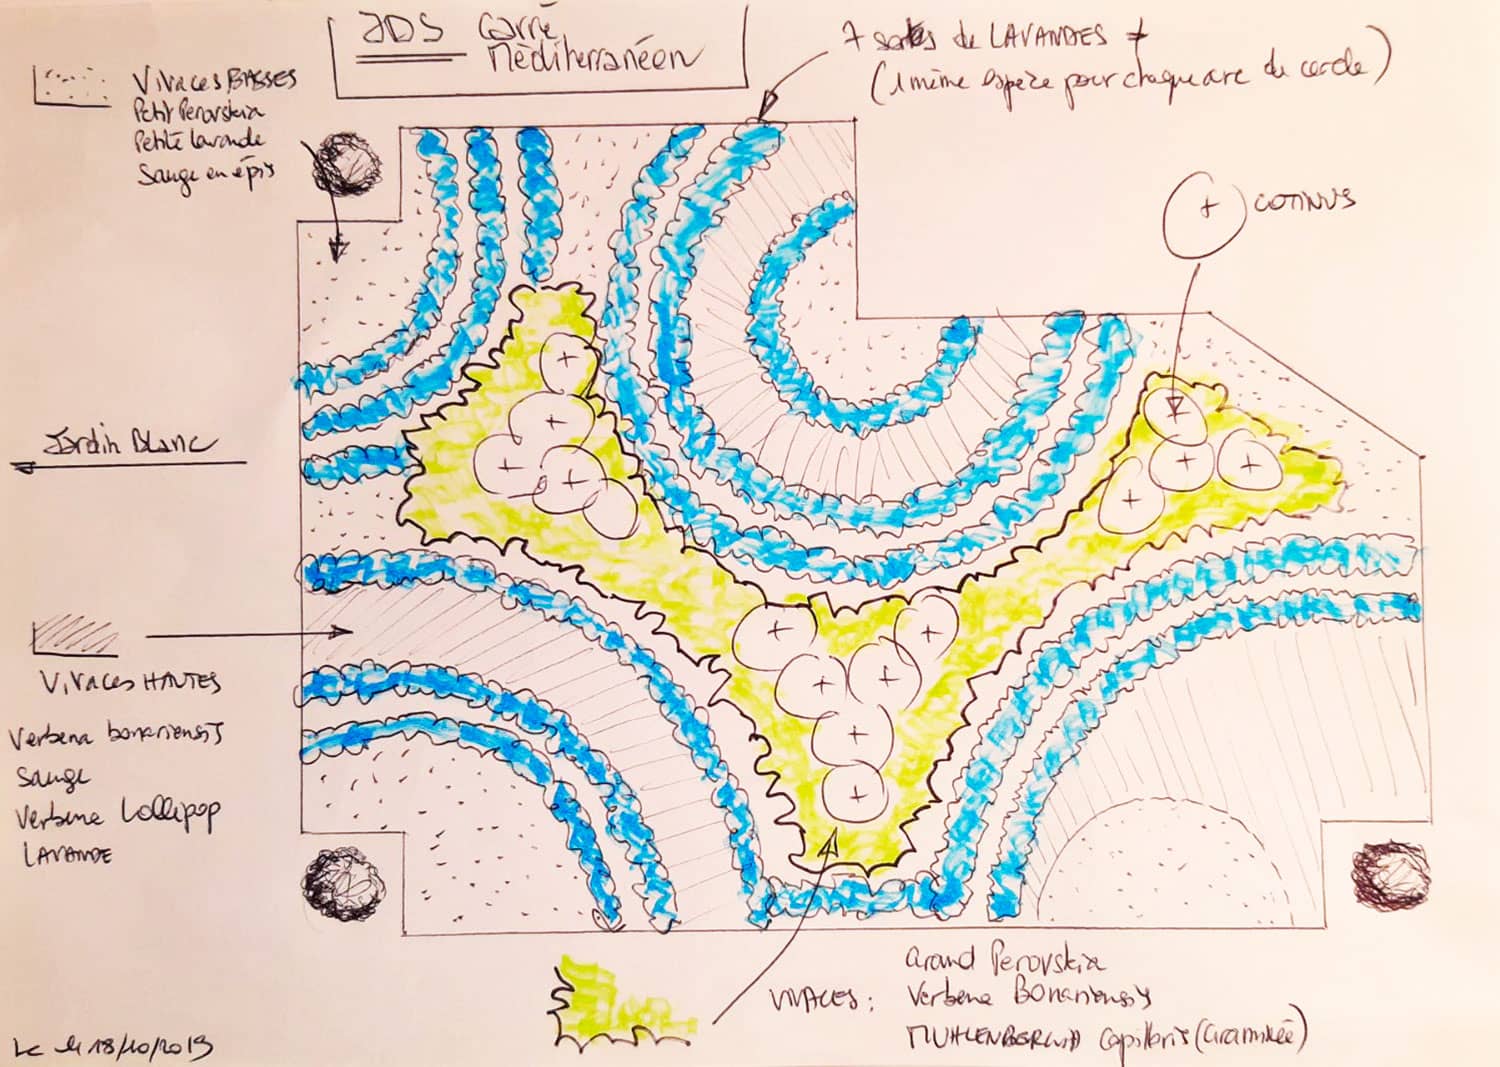 JDS Carré
Méditerranéen
7 sortes de LAVANDES ≠
(1 même espèce pour chaque arc de cercle)
Vivaces BASSES
Petit Perovskia
Petite lavande
Sauge en épis
COTINUS
Jardin Blanc
Vivaces HAUTES
Verbena bonariensis
Sauge
Verbena Lollipop
LAVANDE
VIVACES:
Grand Perovskia
Verbena Bonariensis
MUHLENBERGIA Capillaris (Graminée)
18/10/2019